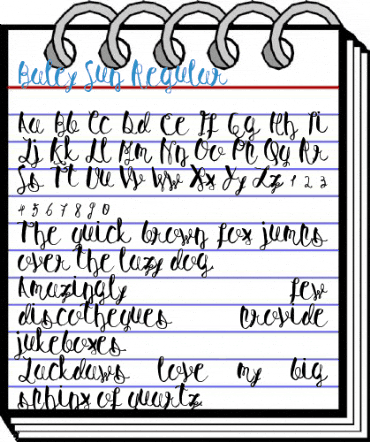 Baley Sun Regular
Aa Bb Cc Dd Ee Ff Gg Hh Ii
Jj Kk Ll Mm Nn Oo Pp Qq Rr
Ss Tt Uu Vv Ww Xx Yy Zz 1 2 3
4 5 6 7 8 9 0
The quick brown fox jumps
over the lazy dog.
Amazingly few
discotheques provide
jukeboxes.
Jackdaws love my big
sphinx of quartz.